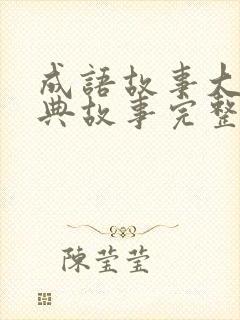 成語故事大
典故事完整
陳莹莹